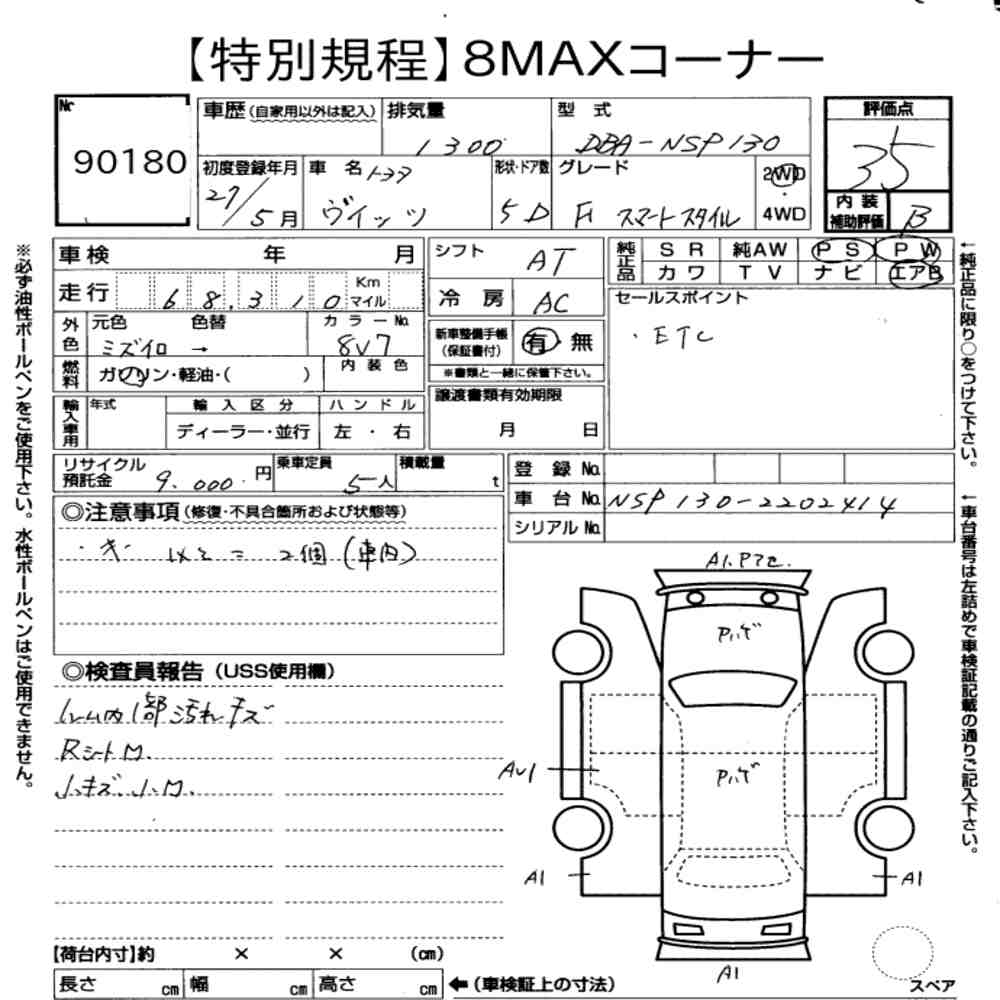 【特別規程】8MAXコーナー
No.
90180
車歴(自家用以外は記入)
排気量
1300
型式
DBA-NSP130
評価点
35
初度登録年月
27/5月
車名
トヨタ
ヴィッツ
形状・ドア数
5D
グレード
F スマートスタイル
2WD
・
4WD
内装
補助評価
B
車検 年 月
シフト
AT
純正品
SR 純AW PS PW
カワ TV ナビ エアB
走行 68,310 Km マイル
冷房
AC
セールスポイント
・ETC
外色
元色 色替
ミズイロ →
カラーNo.
8V7
新車整備手帳
(保証書付)
有・無
※書類と一緒に保管下さい。
燃料
ガソリン・軽油・( )
内装色
譲渡書類有効期限
月 日
輸入車用
年式
輸入区分
ディーラー・並行
ハンドル
左・右
リサイクル預託金
9,000円
乗車定員
5人
積載量
t
登録No.
車台No.
NSP130-2202414
シリアルNo.
◎注意事項(修復・不具合箇所および状態等)
・キー 以こ = 2個(車内)
◎検査員報告(USS使用欄)
トレーム内1部汚れキズ
Rシートロ.
小キズ.小凹.
A1.Pアセ.
Pハゲ
Pハゲ
AU1
A1
A1
A1
スペア
【荷台内寸】約 × × (cm)
長さ cm 幅 cm 高さ cm
←(車検証上の寸法)
※必ず油性ボールペンをご使用下さい。水性ボールペンはご使用できません。
←純正品に限り○をつけて下さい。
←車台番号は左詰めで車検証記載の通りご記入下さい。